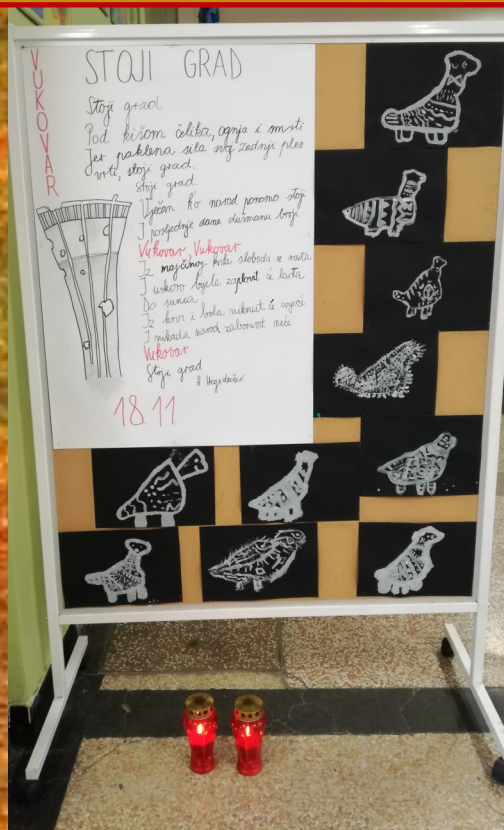 VUKOVAR
STOJI GRAD
Stoji grad
Pod kišom čelika, ognja i smrti
Jer paklena sila svoj zadnji ples
vrti, stoji grad.
Stoji grad.
Vječan ko narod ponosno stoji
I posljednje dane dušmanu broji
Vukovar, Vukovar
Iz majčinog krila sloboda se rađa
I uskoro bijela zaplovit će lađa
Do sunca
Iz krvi i bola niknut će cvijeće
I nikada narod zaboravit neće
Vukovar
Stoji grad
H Hegedušić
18.11.